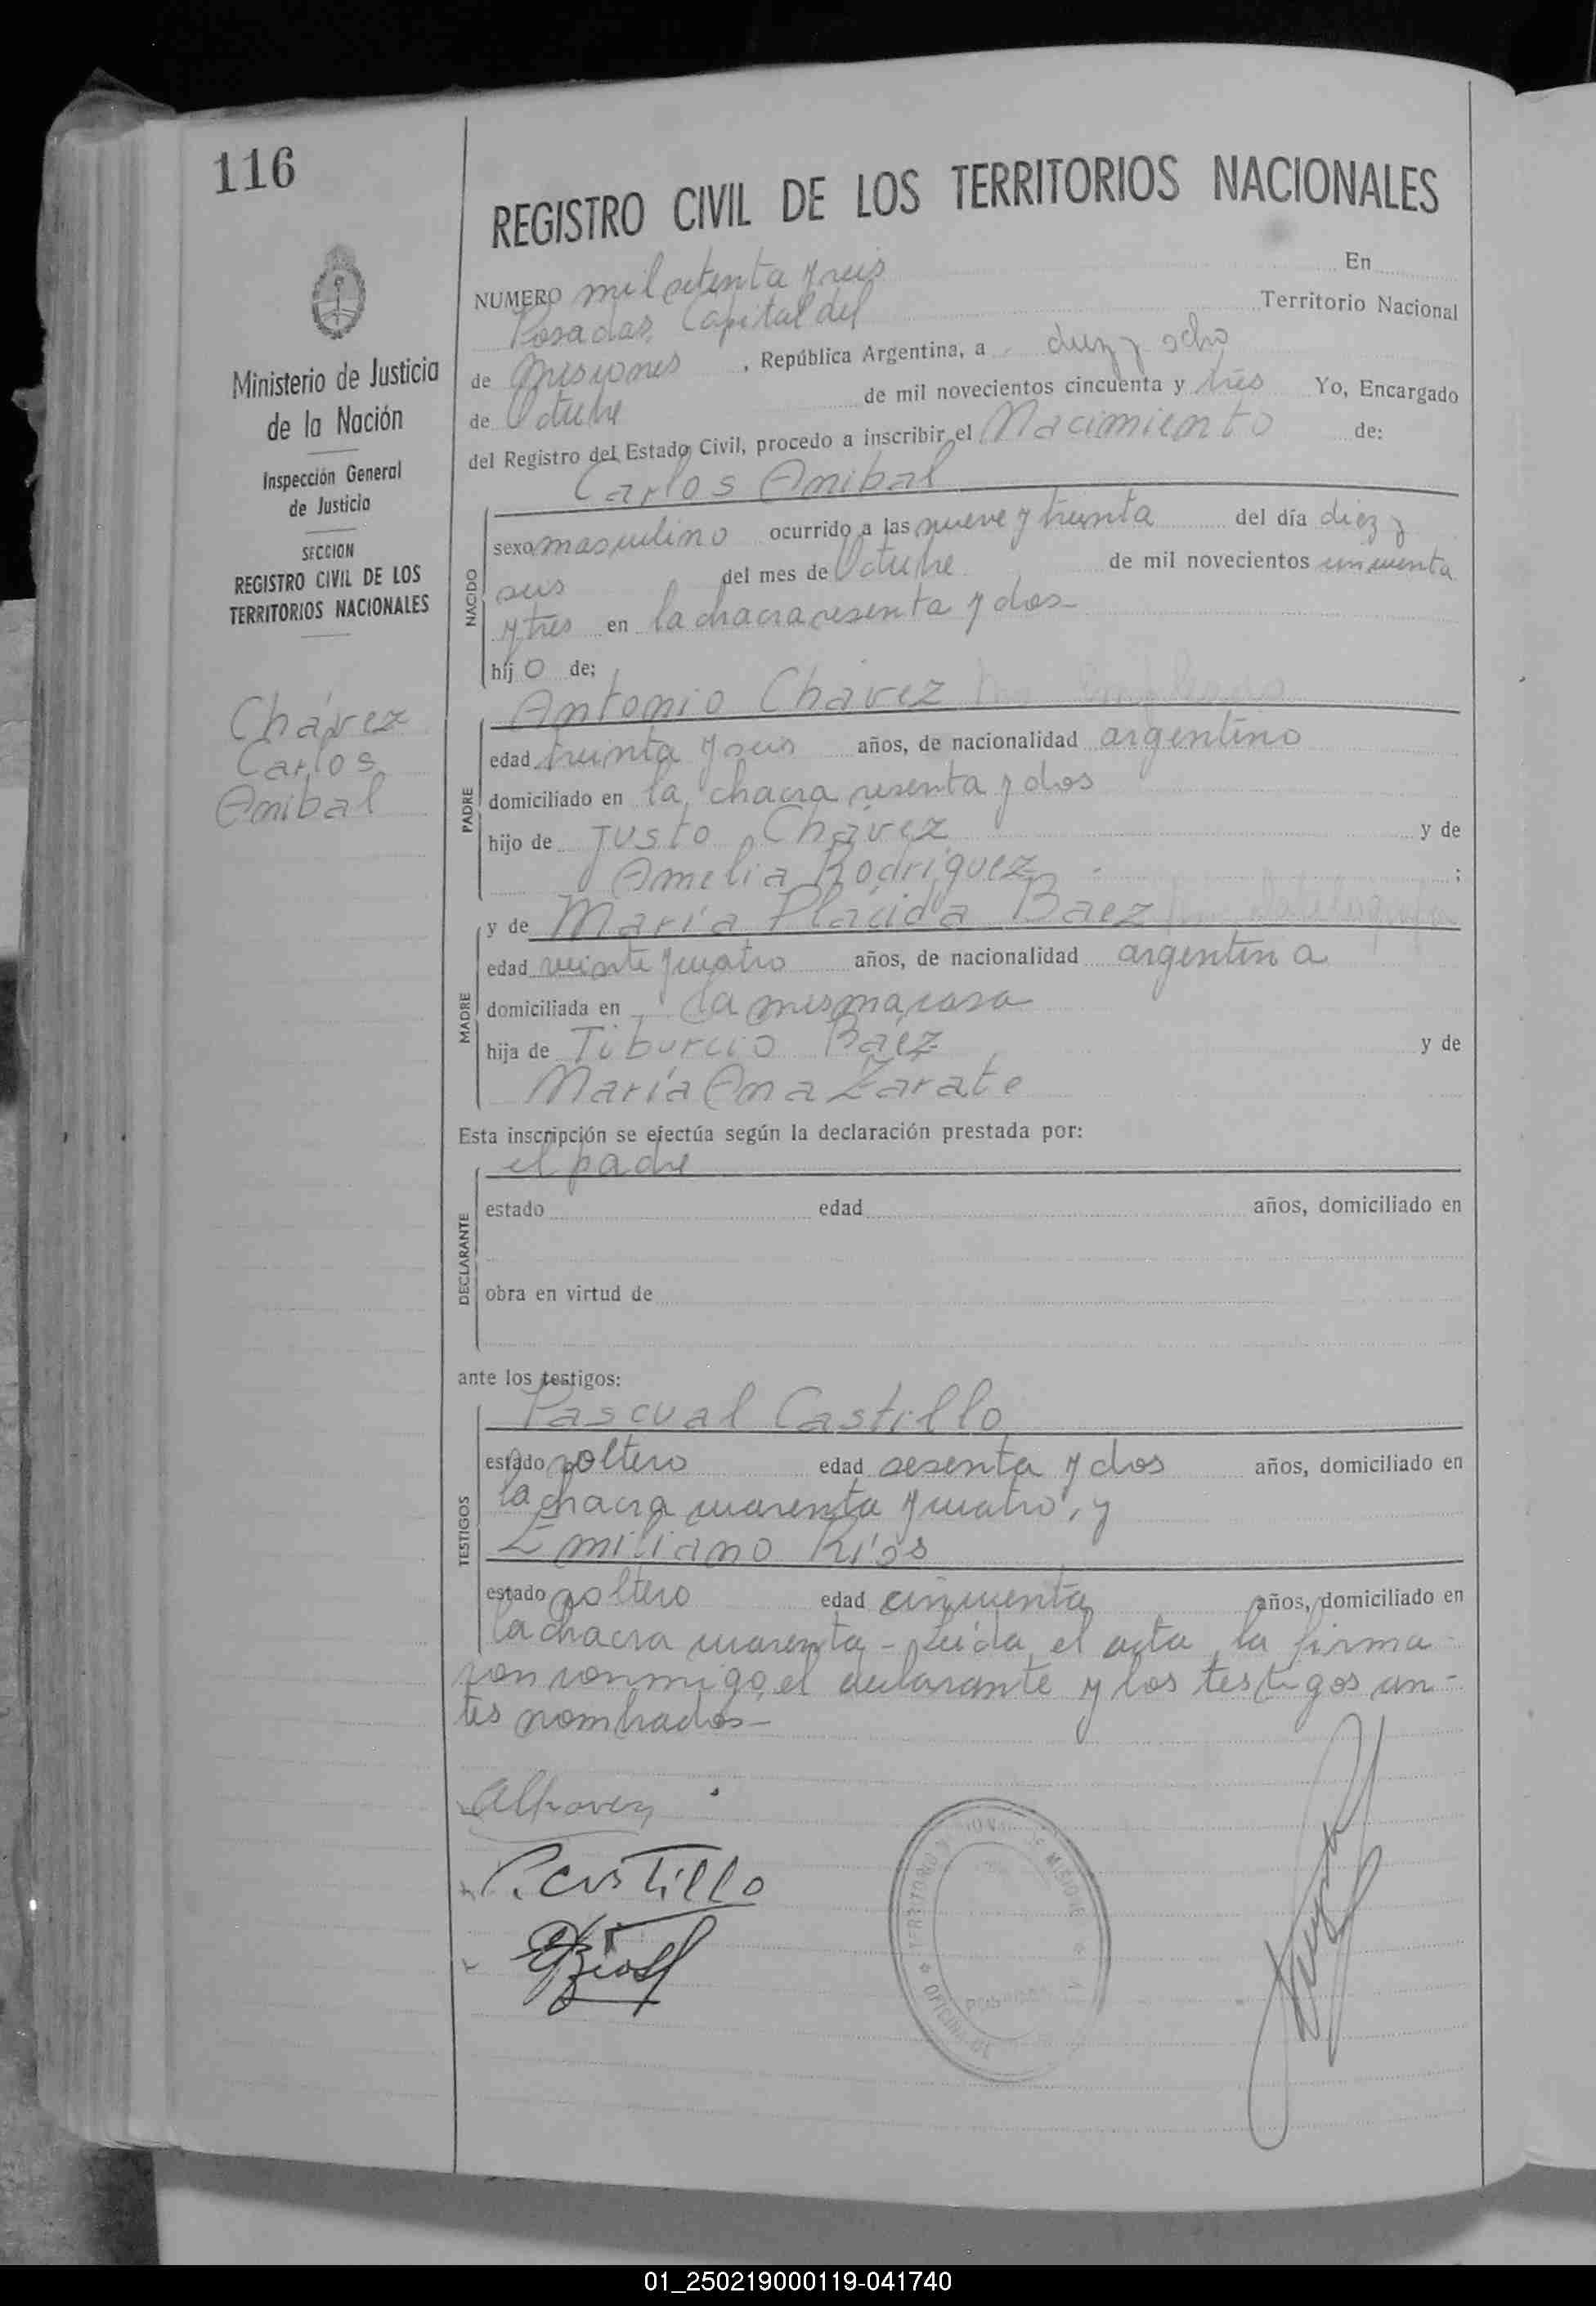 116
Ministerio de Justicia
de la Nación
Inspección General
de Justicia
SECCION
REGISTRO CIVIL DE LOS
TERRITORIOS NACIONALES
Chávez
Carlos
Anibal
REGISTRO CIVIL DE LOS TERRITORIOS NACIONALES
NUMERO mil setenta y seis En
Posadas, Capital del Territorio Nacional
de Misiones, República Argentina, a diez y ocho
de Octubre de mil novecientos cincuenta y tres Yo, Encargado
del Registro del Estado Civil, procedo a inscribir el Nacimiento de:
Carlos Anibal
NACIDO
sexo masculino ocurrido a las nueve y treinta del día diez y
seis del mes de Octubre de mil novecientos cincuenta
y tres en la chacra sesenta y dos-
hijo de;
Antonio Chávez
PADRE
edad treinta y seis años, de nacionalidad argentino
domiciliado en la chacra sesenta y dos
hijo de Justo Chávez y de
Amelia Rodríguez ;
y de María Plácida Baez
MADRE
edad veinte y cuatro años, de nacionalidad argentina
domiciliada en la misma casa
hija de Tiburcio Báez y de
María Ana Zarate
Esta inscripción se efectúa según la declaración prestada por:
el padre
DECLARANTE
estado edad años, domiciliado en
obra en virtud de
ante los testigos:
Pascual Castillo
TESTIGOS
estado soltero edad sesenta y dos años, domiciliado en
la chacra cuarenta y cuatro, y
Emiliano Ríos
estado soltero edad cincuenta años, domiciliado en
la chacra cuarenta - Leída el acta, la firma-
ron conmigo, el declarante y los testigos an-
tes nombrados-
AChavez
P. Castillo
ERios
TERRITORIO NACIONAL DE MISIONES
OFICINA DE
POSADAS
01_250219000119-041740